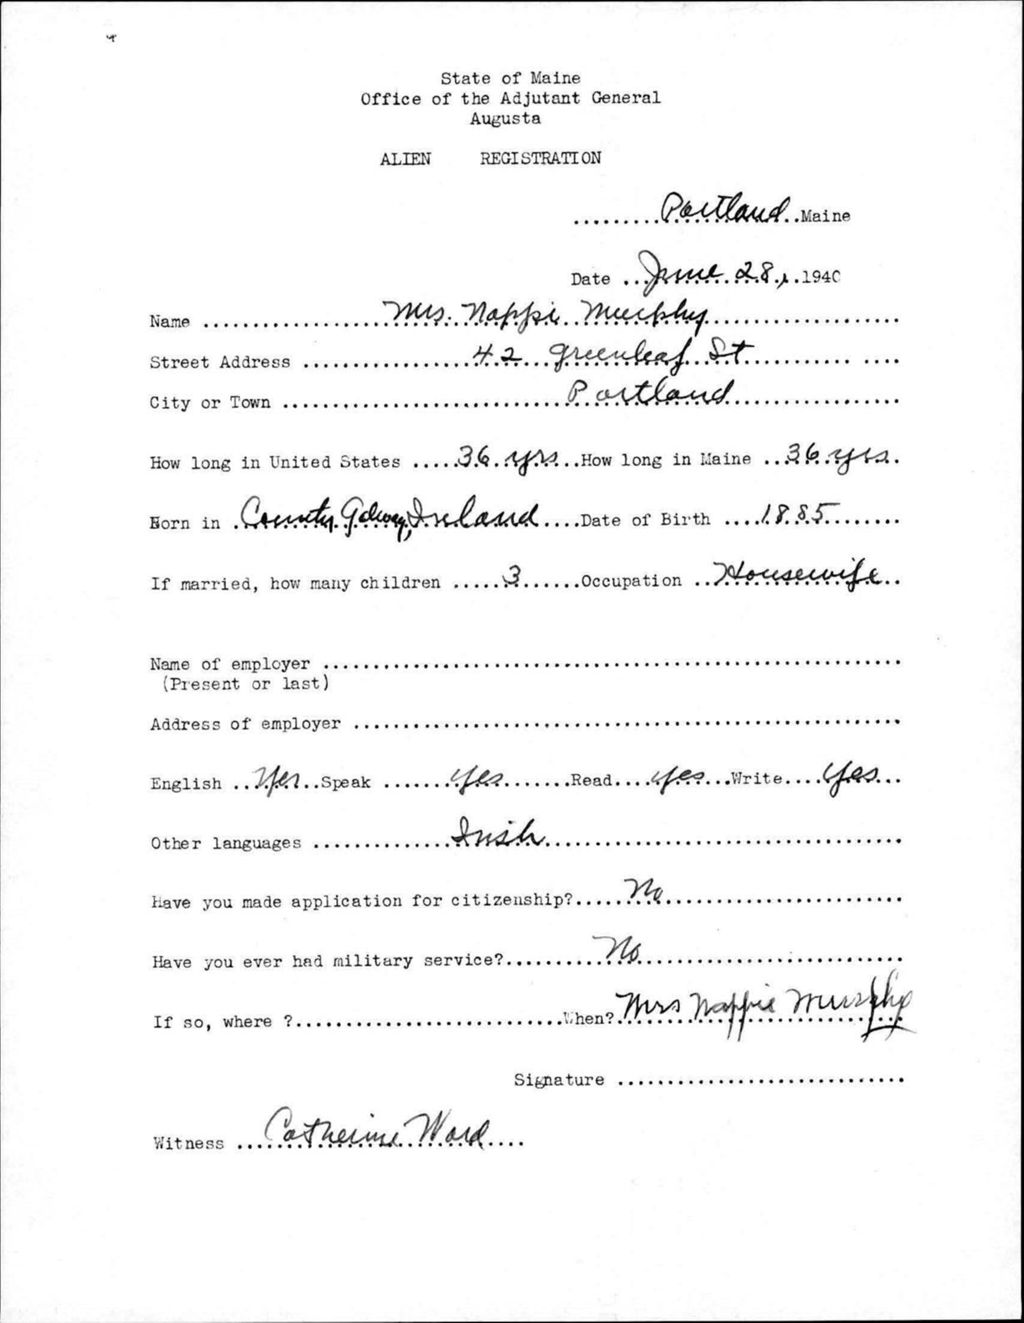 State of Maine
Office of the Adjutant General
Augusta
ALIEN REGISTRATION
.........Portland..Maine
Date ..June 28,..1940
Name ......................Mrs. Nappie Murphy.......................
Street Address .................42 Greenleaf St............ ....
City or Town ............................Portland....................
How long in United States .....36 yrs...How long in Maine ..36 yrs.
Born in .County Galway, Ireland....Date of Birth ....1885........
If married, how many children .....3......Occupation ..Housewife..
Name of employer ............................................................
(Present or last)
Address of employer .........................................................
English ..Yes..Speak .......yes.......Read....yes...Write....Yes...
Other languages ..............Irish.....................................
Have you made application for citizenship?.....No.........................
Have you ever had military service?..........No...........................
If so, where ?...........................When?.Mrs Nappie Murphy
Signature .............................
Witness ...Catherine Ward....